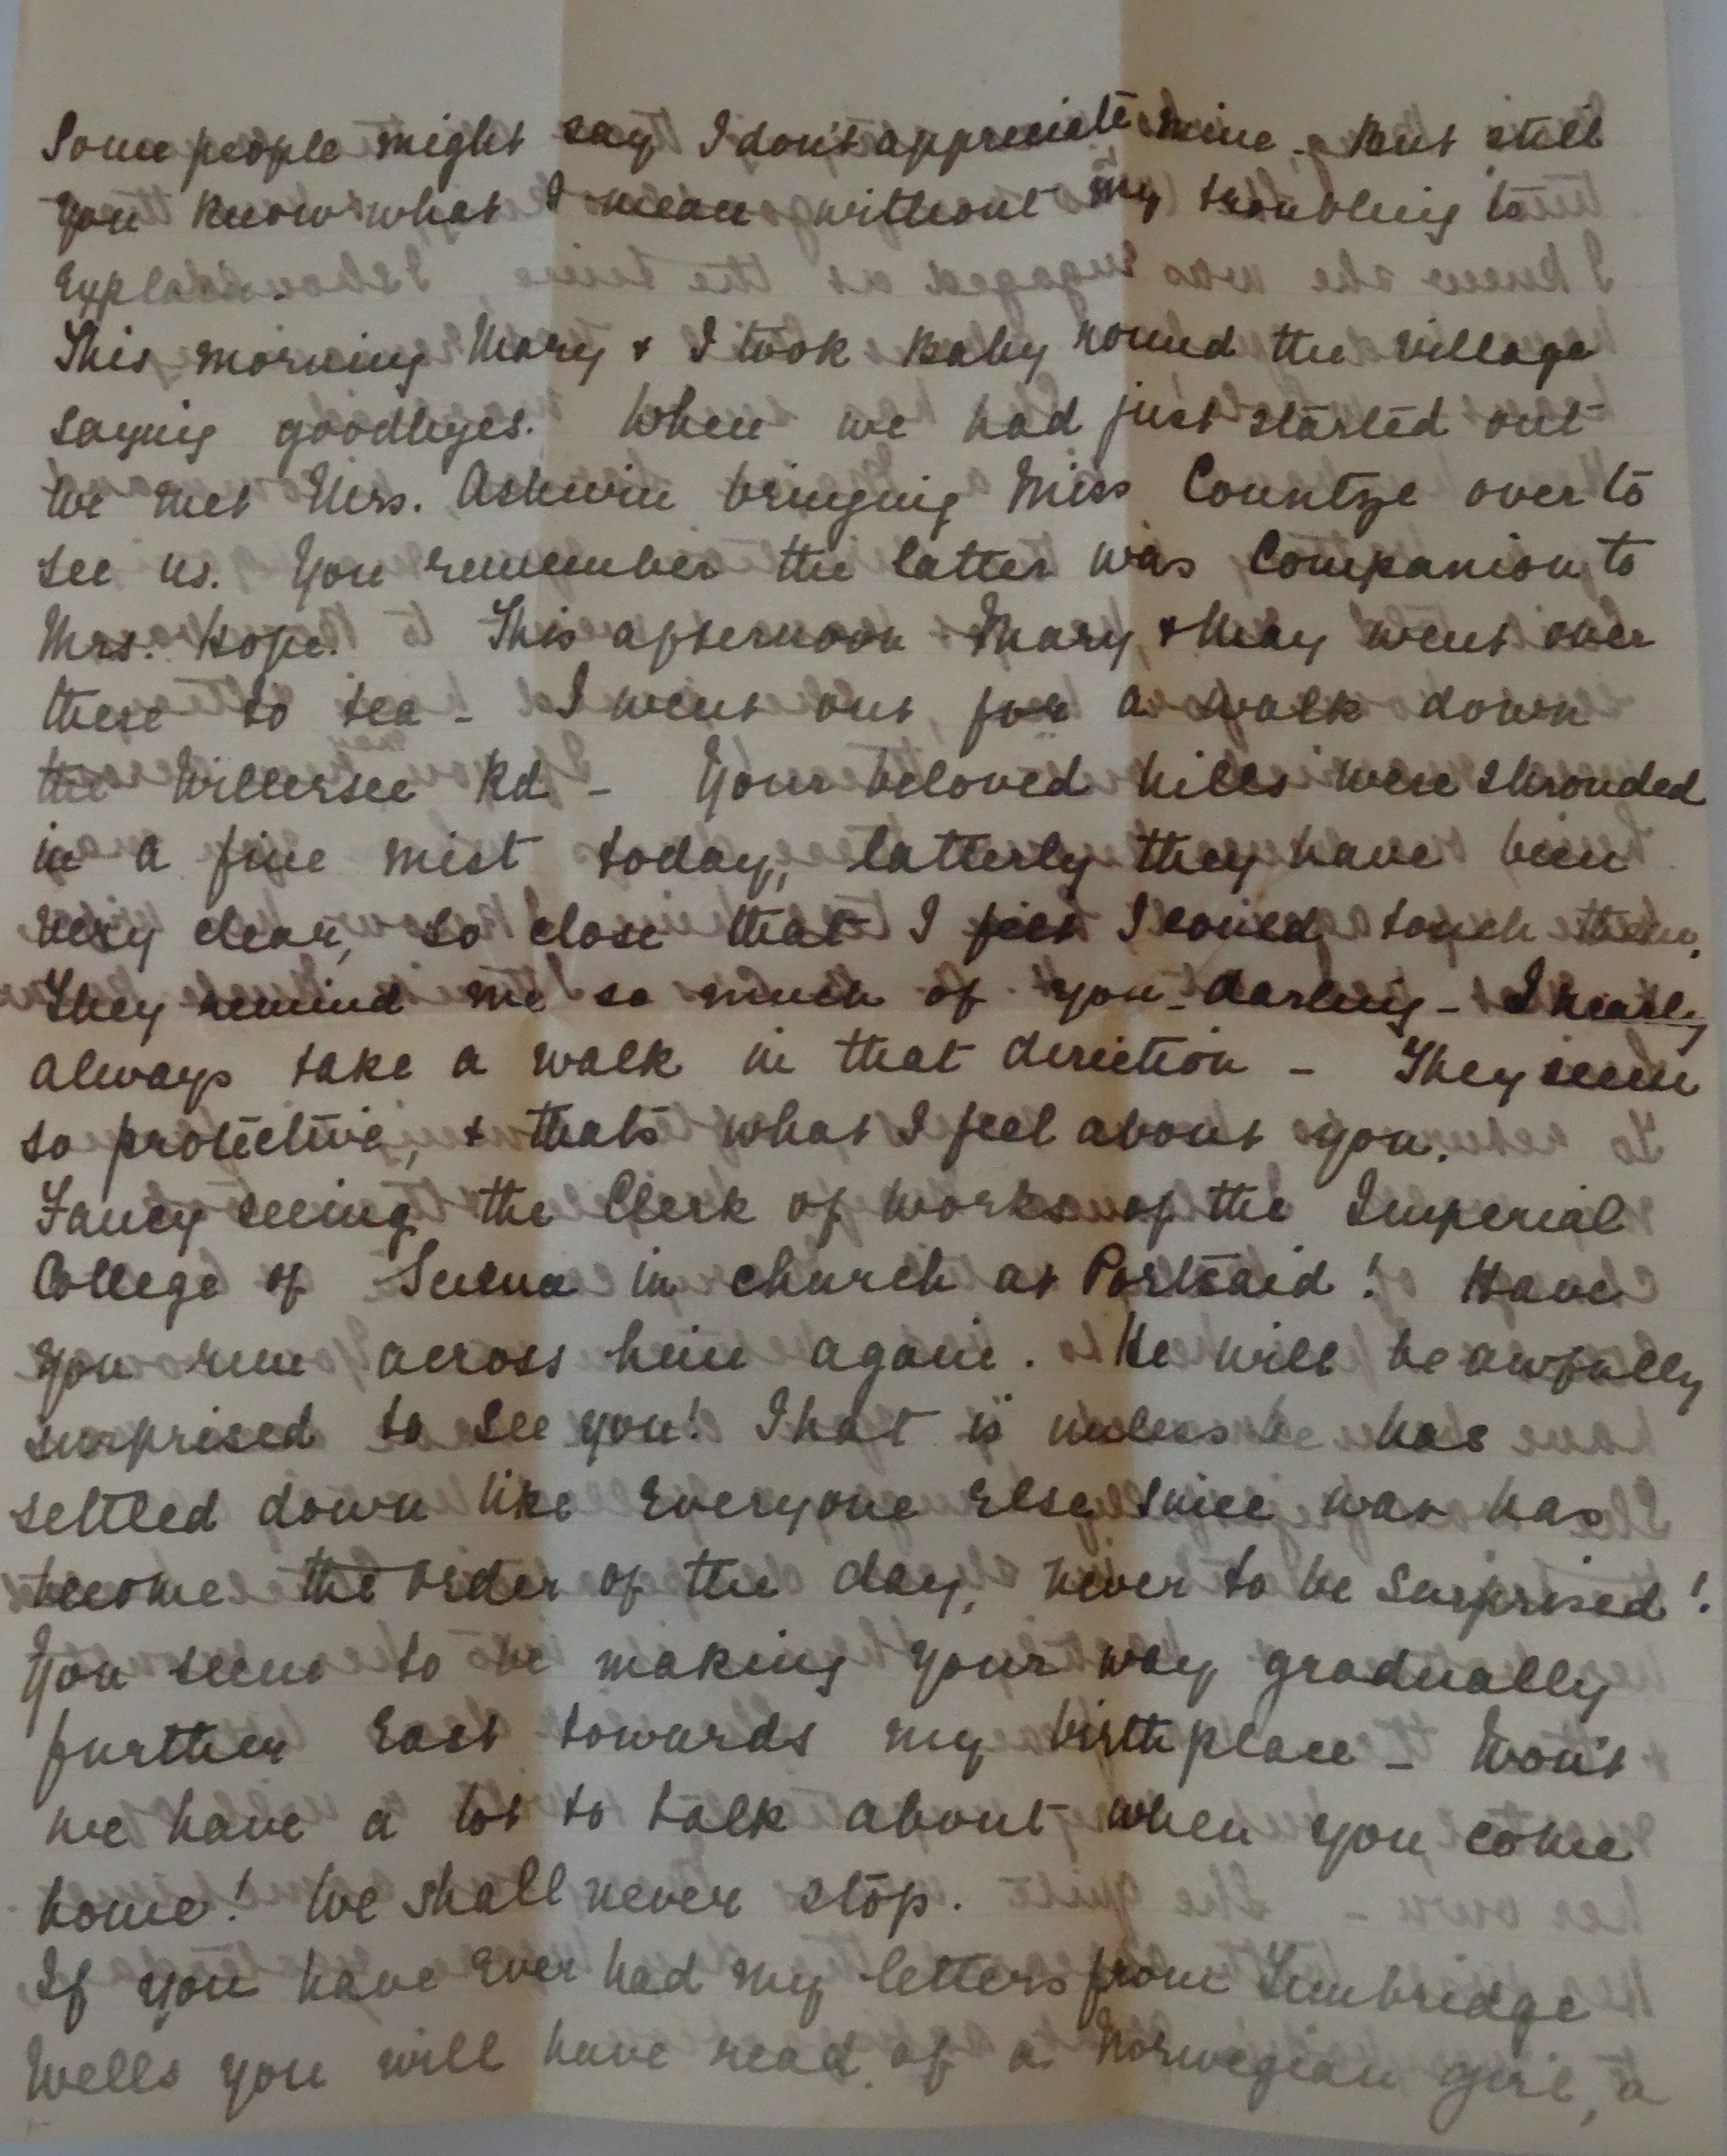 Some people might say I don't appreciate mine - But still
you know what I mean without my troubling to
explain.
This morning Mary & I took Baby round the village
saying goodbyes. When we had just started out
we met Mrs. Ashwin bringing Miss Countze over to
see us. You remember the latter was Companion to
Mrs. Hope. This afternoon Mary & May went over
there to tea - I went out for a walk down
the Willersee Rd - Your beloved hills were shrouded
in a fine mist today, latterly they have been
very clear, so close that I feel I could touch them.
They remind me so much of you - darling - I nearly
always take a walk in that direction - They seem
so protective, & thats what I feel about you.
Fancy seeing the Clerk of Works of the Imperial
College of Science in church at Portsaid! Have
you run across him again. He will be awfully
surprised to see you! That is unless he has
settled down like everyone else, since war has
become the order of the day, never to be surprised!
You seem to be making your way gradually
further East towards my birthplace - Won't
we have a lot to talk about when you come
home! We shall never stop.
If you have ever had my letters from Tunbridge
Wells you will have read of a Norwegian girl, a